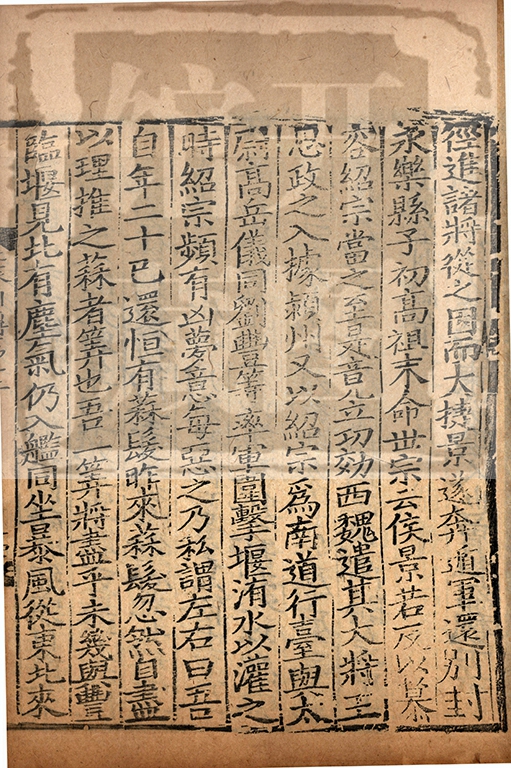 徑進諸將從之因而大捷景遂奔遁軍還別封
永樂縣子初高祖末命世宗云侯景若反以慕
容紹宗當之至是竟立功効西魏遣其大將王
思政之入據潁州又以紹宗爲南道行臺與太
尉高岳儀同劉豊等率軍圍擊堰洧水以灌之
時紹宗頻有凶夢意每惡之乃私謂左右曰吾
自年二十已還恒有蒜髮昨來蒜髮忽然自盡
以理推之蒜者筭也吾一筭將盡乎未幾與豊
臨堰見北有塵氣仍入艦同坐暴風從東北來